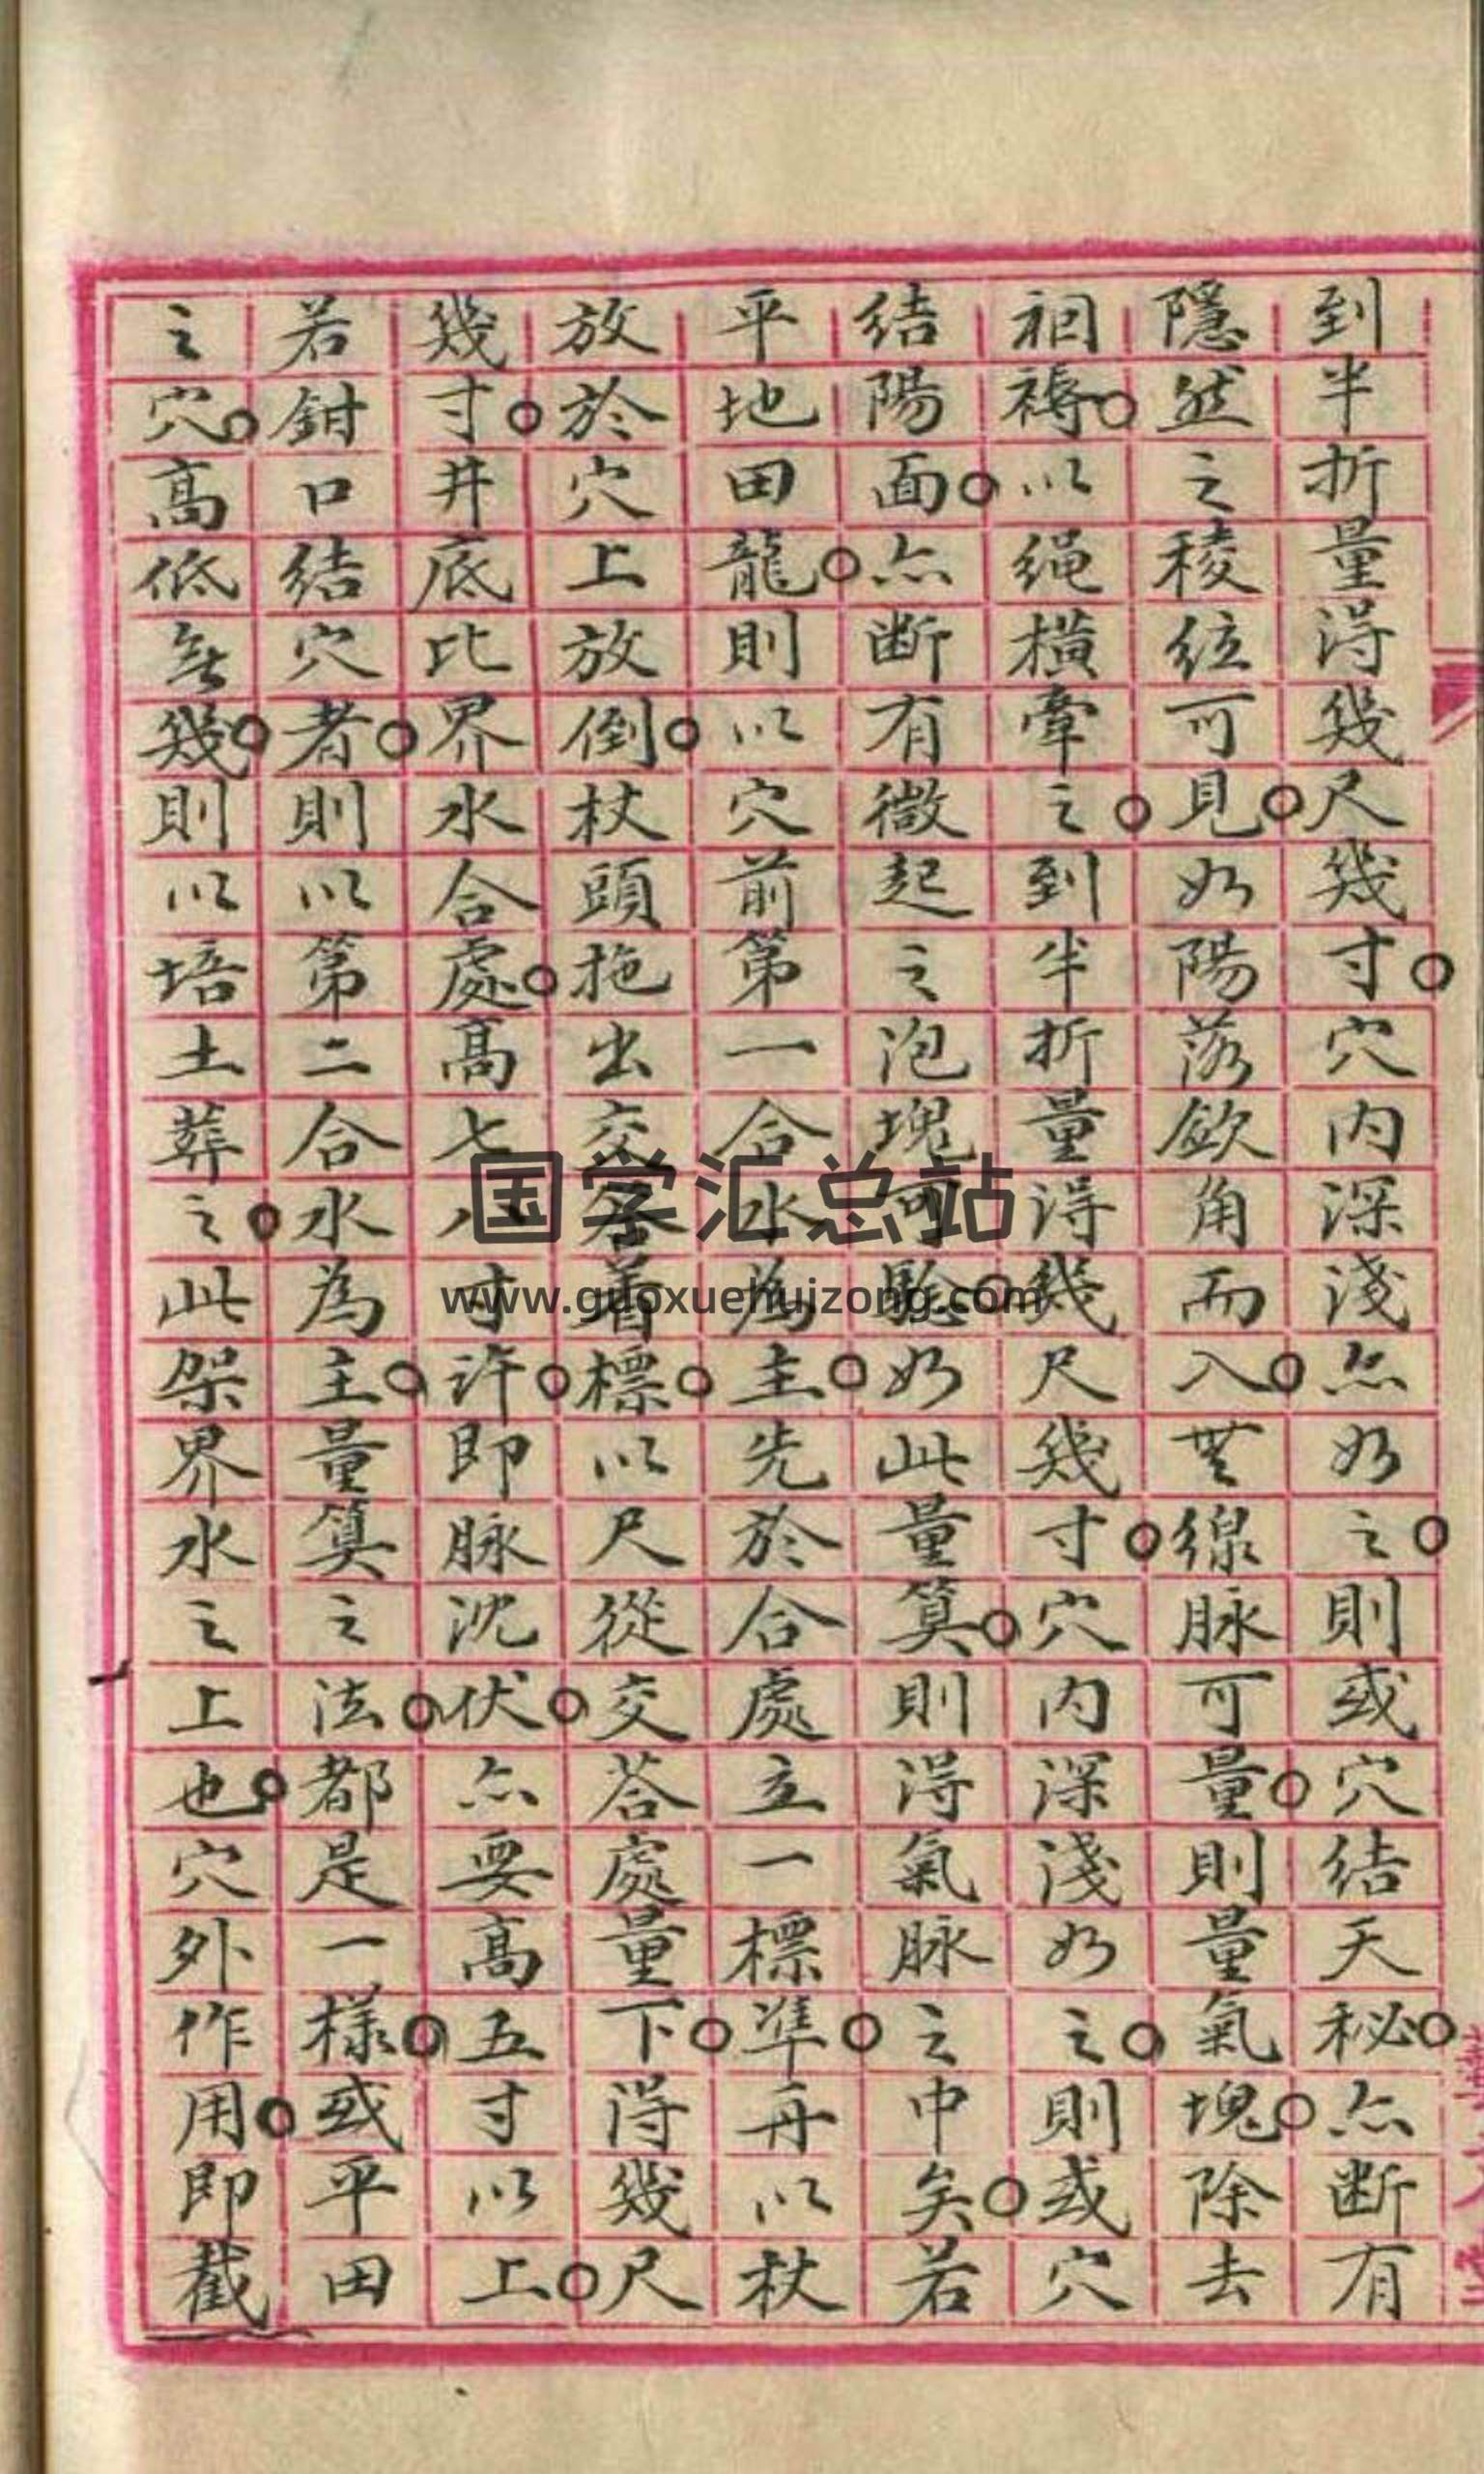 到半折量得幾尺幾寸○穴内深淺亦如之○則或穴結天秘○亦断有
隱然之稜絃可見○如陽落欽角而入○無線脉可量○則量氣塊○除去
裀褥○以绳横牽之○到半折量得幾尺幾寸○穴内深淺如之○則或穴
结陽面○亦断有微起之泡塊可驗○如此量算○則得氣脉之中矣○若
平地田龍○則以穴前第一合水為主○先於合處立一標凖○再以杖
放於穴上放倒○杖頭拖出交荅着標○以尺從交荅處量下○得幾尺
幾寸○井底比界水合處○高七八寸許○即脉沈伏○亦要高五寸以上○
若鉗口結穴者○則以第二合水為主○量算之法○都是一樣○或平田
之穴○高低無幾○則以培土葬之○此架界水之上也○穴外作用○即截
国学汇总站
www.guoxuehuizong.com